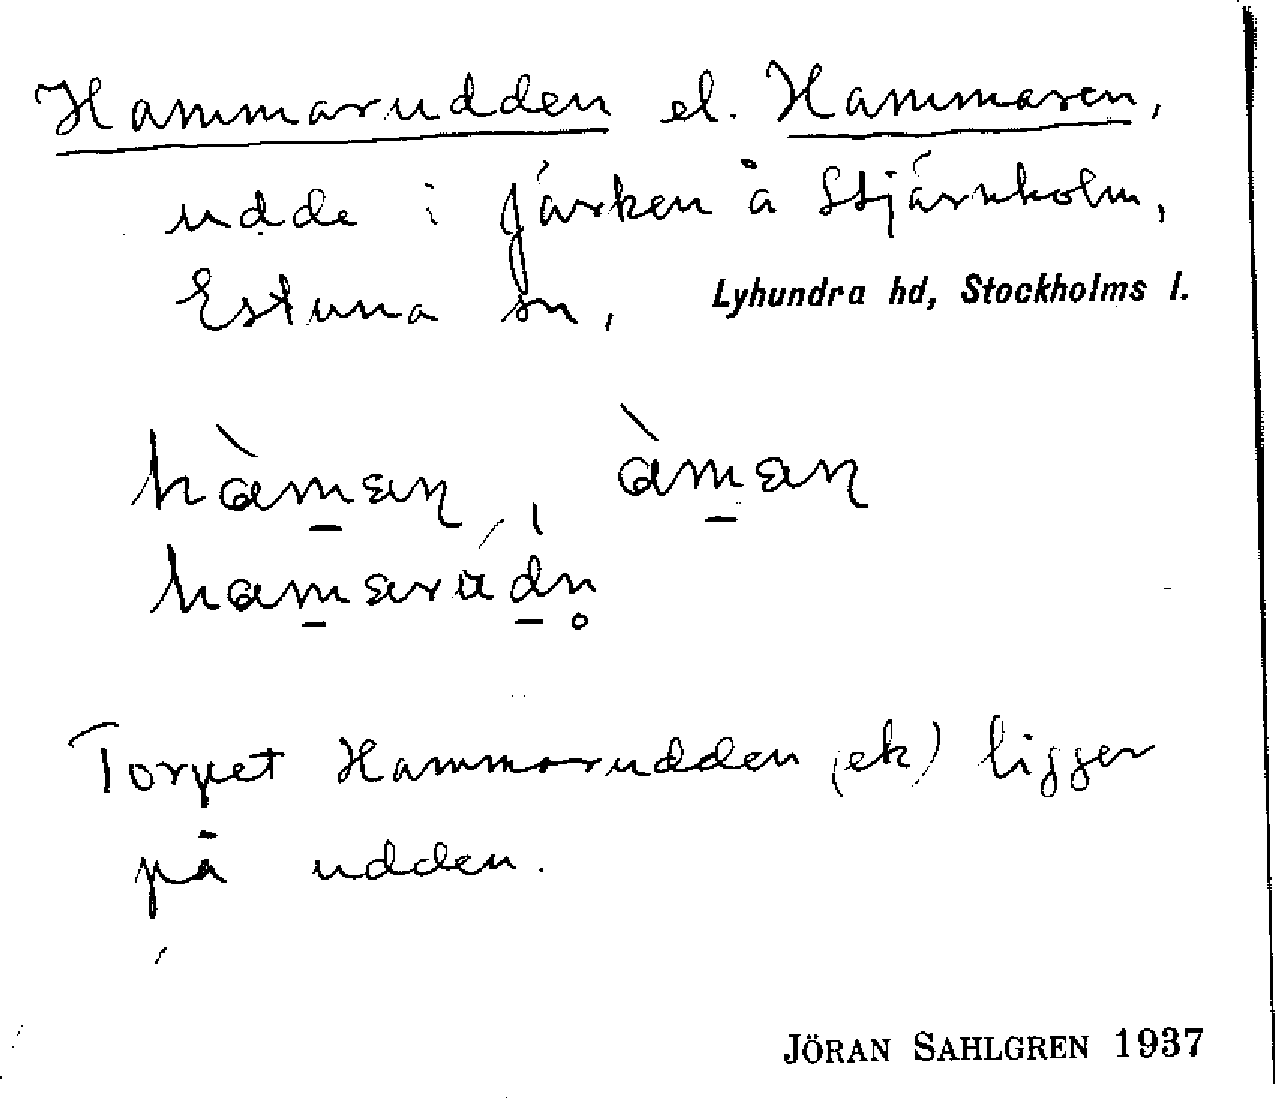 Hammarudden el. Hammaren,
udde i Järken å Stjärnholm,
Estuna sn, Lyhundra hd, Stockholms l.
hàm̱aɳ, àm̱aɳ
ham̱arúḏn̥
Torpet Hammarudden (ek) ligger
på udden.
JÖRAN SAHLGREN 1937